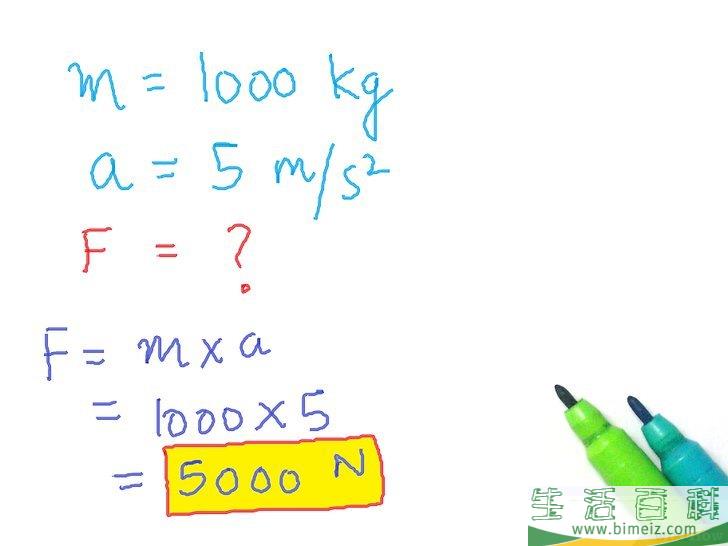 m = 1000 kg
a = 5 m/s²
F = ?
F = m x a
= 1000 x 5
= 5000 N
生活百科
www.bimeiz.com